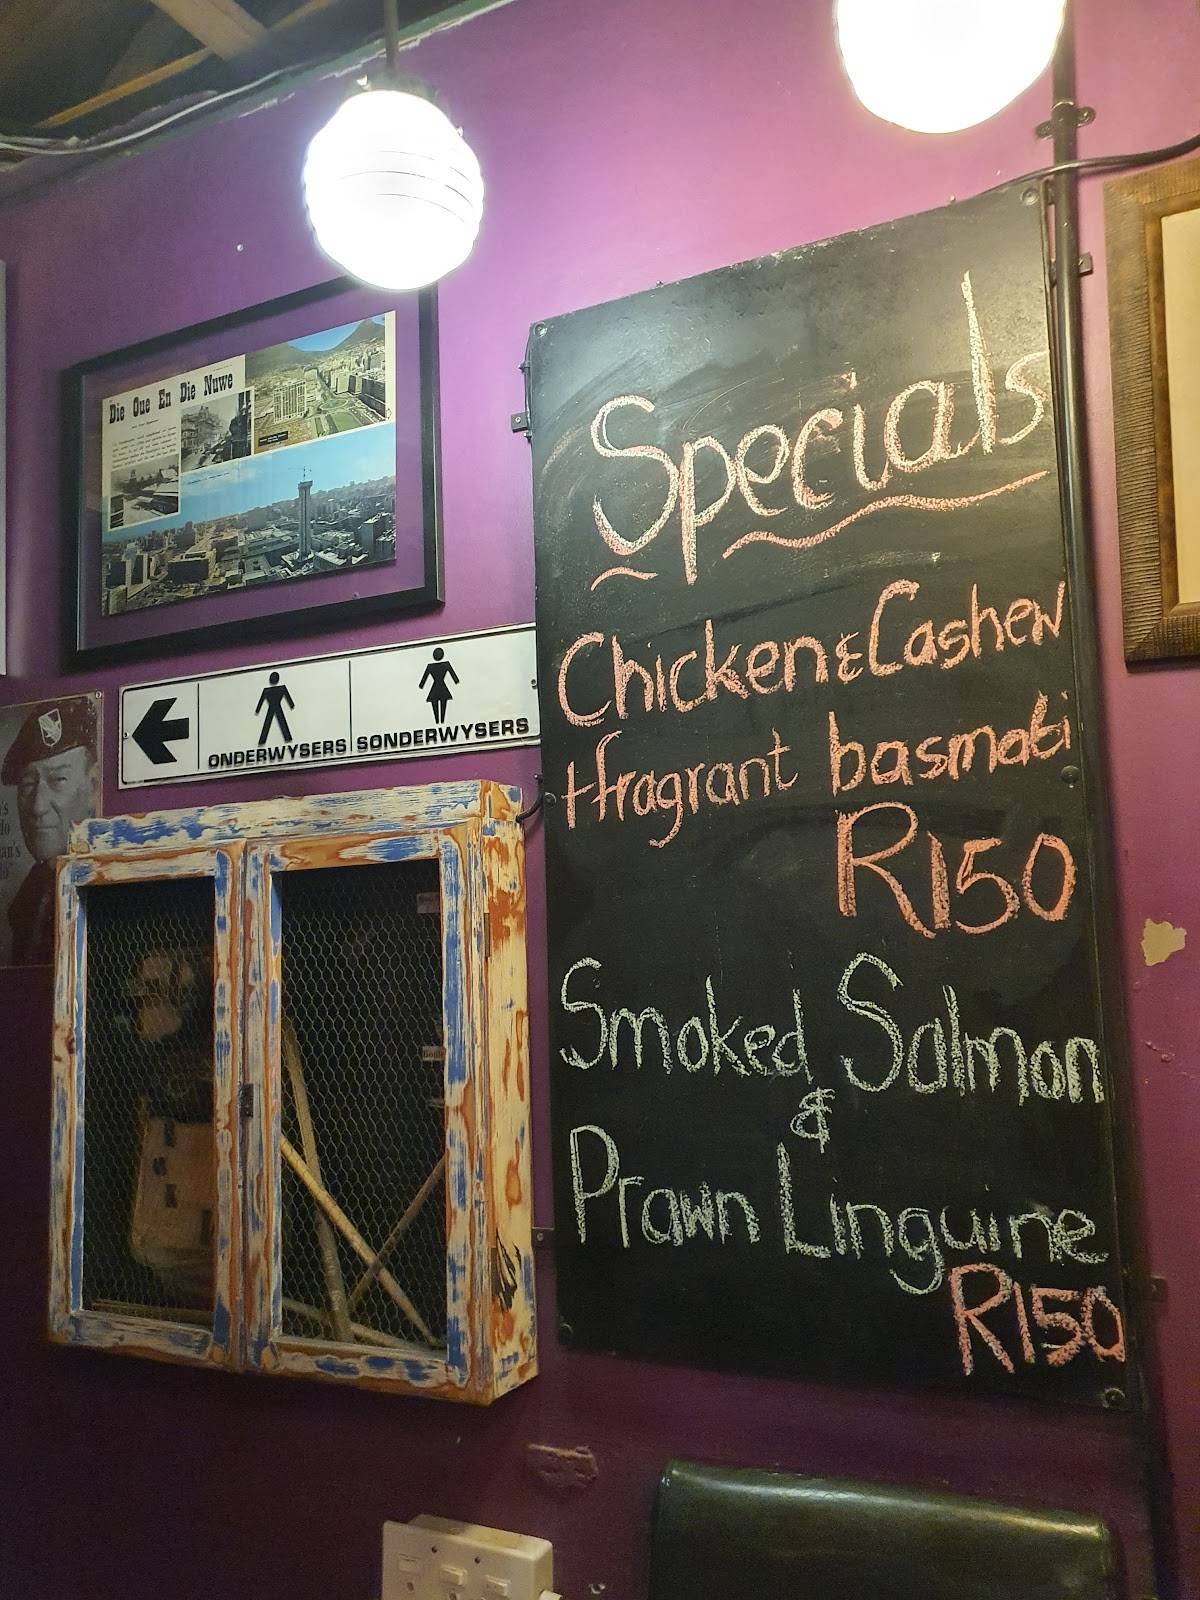 Die Oue En Die Nuwe
ONDERWYSERS SONDERWYSERS
Specials
Chicken & Cashew
+ fragrant basmati
R150
Smoked Salmon
&
Prawn Linguine
R150